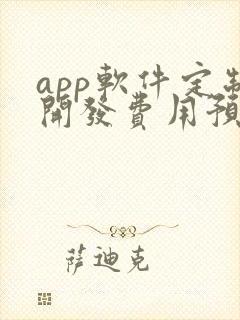 app軟件定制
開發費用預
萨迪克